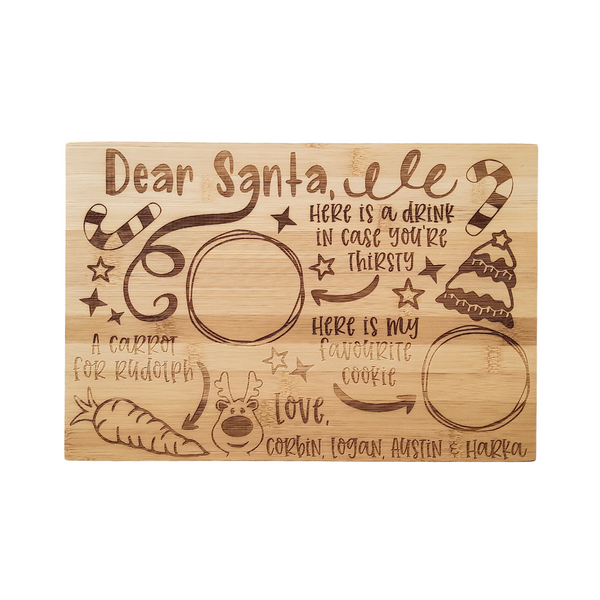 Dear Santa,
Here is a drink
in case you're
thirsty
Here is my
favourite
cookie
A carrot
for Rudolph
Love,
Corbin, Logan, Austin & Harka